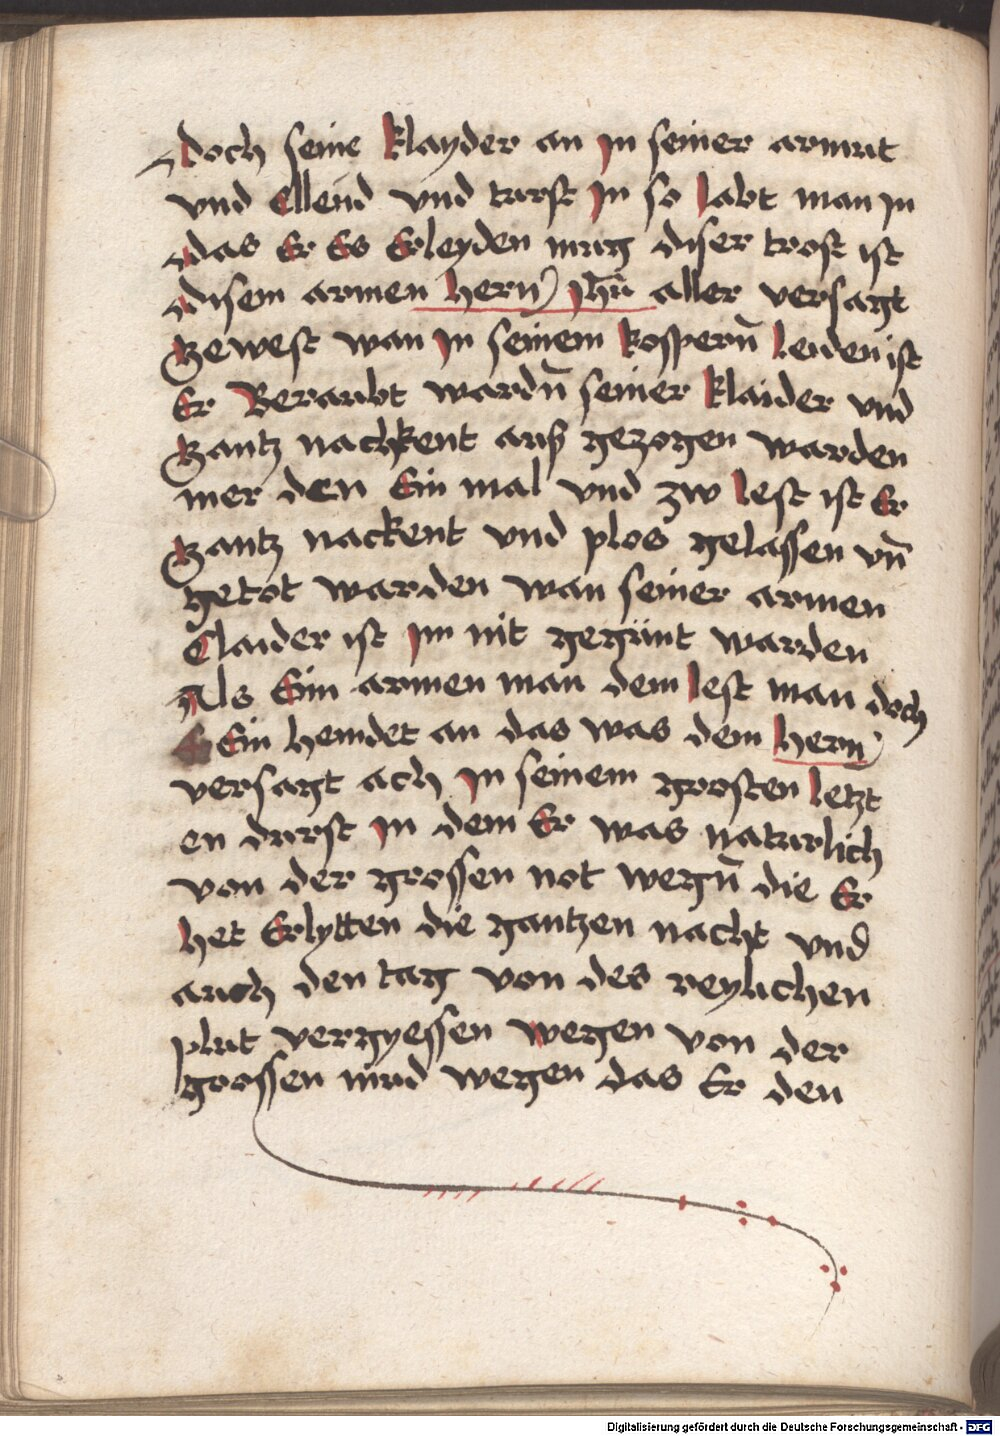 doch seine klayder an jn seiner armut
vnd Ellend vnd turst jn so labt man jn
das Er Es Erleyden mug diser trost ist
disem armen hern jhū aller versagt
gewest wan jn seinem kospern̄ leiden ist
Er Beraubt wardn̄ seiner klaider vnd
gantz nachkent auß gezogen warden
mer den Ein mal vnd zw lest ist Er
gantz nackent vnd plos gelassen vn̄
getot warden wan seiner armen
Claider ist im nit gegünt warden
Als Eim armen man dem lest man doch
Ein hemdet an das was dem hern
versagt ach jn seinem grosten letzt
en durst jn dem Er was naturlich
von der grossen not wegn̄ die Er
het Erlytten die gantzen nacht vnd
auch den tag von des reylichen
plut vergyessen wegen von der
grossen mud wegen das Er den
Digitalisierung gefördert durch die Deutsche Forschungsgemeinschaft - DFG